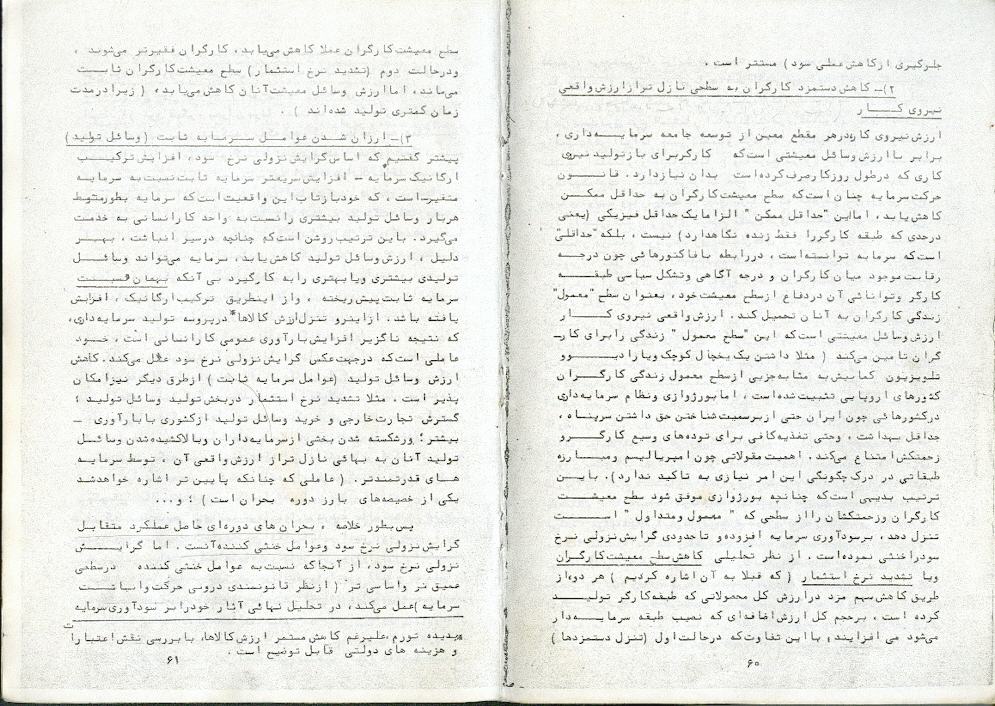 جلوگیری از کاهش عملی سود) مستتر است .
۲)ـ کاهش دستمزد کارگران به سطحی نازل تر از ارزش واقعی
نیروی کـــار
ارزش نیروی کار، در هر مقطع معین از توسعه جامعه سرمایـــه داری ،
برابر با ارزش وسائل معیشتی است که کارگر برای بازتولید نیروی
کاری که در طول روز کار صرف کرده است بدان نیاز دارد. قانـــون
حرکت سرمایه چنان است که سطح معیشت کارگران به حداقل ممکن
کاهش یابد ، اما این "حداقل ممکن " الزاما یک حداقل فیزیکی (یعنی
در حدی که طبقه کارگر را فقط زنده نگاهدارد) نیست ، بلکه "حداقلی"
است که سرمایه توانسته است ، در رابطه با فاکتورهائی چون درجـــه
رقابت موجود میان کارگران و درجه آگاهی و تشکل سیاسی طبقـــه
کارگر و توانائی آن در دفاع از سطح معیشت خود، بعنوان سطح "معمول"
زندگی کارگران به آنان تحمیل کند . ارزش واقعی نیروی کـــار
ارزش وسائل معیشتی است که این "سطح معمول " زندگی را برای کارـ
گران تامین می‌کند ( مثلا داشتن یک یخچال کوچک و یا رادیـــو
تلویزیون کمابیش به مثابه جزیی از سطح معمول زندگی کارگـــران
کشورهای اروپایی تثبیت شده است ، اما بورژوازی و نظام سرمایه داری
در کشورهائی چون ایران حتی از برسمیت شناختن حق داشتن سرپناه ،
حداقل بهداشت ، وحتی تغذیه کافی برای توده های وسیع کارگـــر و
زحمتکش امتناع می‌کند. اهمیت مقولاتی چون امپریالیسم و مبـــارزه
طبقاتی در درک چگونگی این امر نیازی به تاکید ندارد). بایـــن
ترتیب بدیهی است که چنانچه بورژوازی موفق شود سطح معیشـــت
کارگران و زحمتکشان را از سطحی که " معمول و متداول " اســـت
تنزل دهد، بر سودآوری سرمایه افزوده و تا حدودی گرایش نزولی نرخ
سود را خنثی نموده است . از نظر تحلیلی کاهش سطح معیشت کارگران
و یا تشدید نرخ استثمار ( که قبلا به آن اشاره کردیم ) هر دو از
طریق کاهش سهم مزد در ارزش کل محصولاتی که طبقه کارگر تولیـــد
کرده است ، بر حجم کل ارزش اضافه ای که نصیب طبقه سرمایـــه دار
می‌شود می افزایند، با این تفاوت که در حالت اول (تنزل دستمزدها )
۶۰
سطح معیشت کارگران عملا کاهش می‌یابد ، کارگران فقیرتر می‌شوند ،
و در حالت دوم (تشدید نرخ استثمار ) سطح معیشت کارگران ثابـــت
می‌ماند ، اما ارزش وسائل معیشت آنان کاهش می‌یابد ، ( زیرا در مدت
زمان کمتری تولید شده اند ) .
۳)ـ ارزان شدن عوامـــل سرمایـــه ثابت ( وسائل تولید )
پیشتر گفتیم که اساس گرایش نزولی نرخ سود ، افزایش ترکیـــب
ارگانیک سرمایه ـ افزایش سریعتر سرمایه ثابت نسبت به سرمایه
متغیر است ، که خود بازتاب این واقعیت است که سرمایه بطور متوسط
هر بار وسائل تولید بیشتری را نسبت به واحد کار انسانی به خدمت
می‌گیرد . باین ترتیب روشن است که چنانچه در سیر انباشت ، بهـــر
دلیل ، ارزش وسائل تولید کاهش یابد، سرمایه می‌تواند وسائـــل
تولیدی بیشتری و یا بهتری را به کار گیرد بی آنکه بهمان نسبـــت
سرمایه ثابت پیش ریخته ، و از اینطریق ترکیب ارگانیک ، افزایش
یافته باشد . از اینرو تنزل ارزش کالاها* در پروسه تولید سرمایه داری،
که نتیجه ناگزیر افزایش بارآوری عمومی کار انسانی است ، خـــود
عاملی است که در جهت عکس گرایش نزولی نرخ سود عمل می‌کند. کاهش
ارزش وسائل تولید (عوامل سرمایه ثابت ) از طرق دیگر نیز امکان
پذیر است . مثلا تشدید نرخ استثمار در بخش تولید وسائل تولید ؛
گسترش تجارت خارجی و خرید وسائل تولید از کشوری با بارآوری ـ
بیشتر؛ ورشکسته شدن بخشی از سرمایه داران و بالا کشیده شدن وسائـــل
تولید آنان به بهائی نازل تر از ارزش واقعی آن ، توسط سرمایـــه
هــای قدرتمندتر . ( عاملی که چنانکه پایین تر اشاره خواهد شد
یکی از خصیصه های بارز دوره بحران است ) ؛ و...
پس بطور خلاصه ، بحران های دوره ای حاصل عملکرد متقابـــل
گرایش نزولی نرخ سود و عوامل خنثی کننده آنست . اما گرایـــش
نزولی نرخ سود ، از آنجا که نسبت به عوامل خنثی کننده در سطحی
عمیق تر و اساسی تر ( از نظر قانونمندی درونی حرکت و انباشـــت
سرمایه )عمل می‌کند، در تحلیل نهائی آثار خود را بر سودآوری سرمایه
* پدیده تورم ،علیرغم کاهش مستمر ارزش کالاها، با بررسی نقش اعتبار ات
و هزینه های دولتی قابل توضیح است .
۶۱